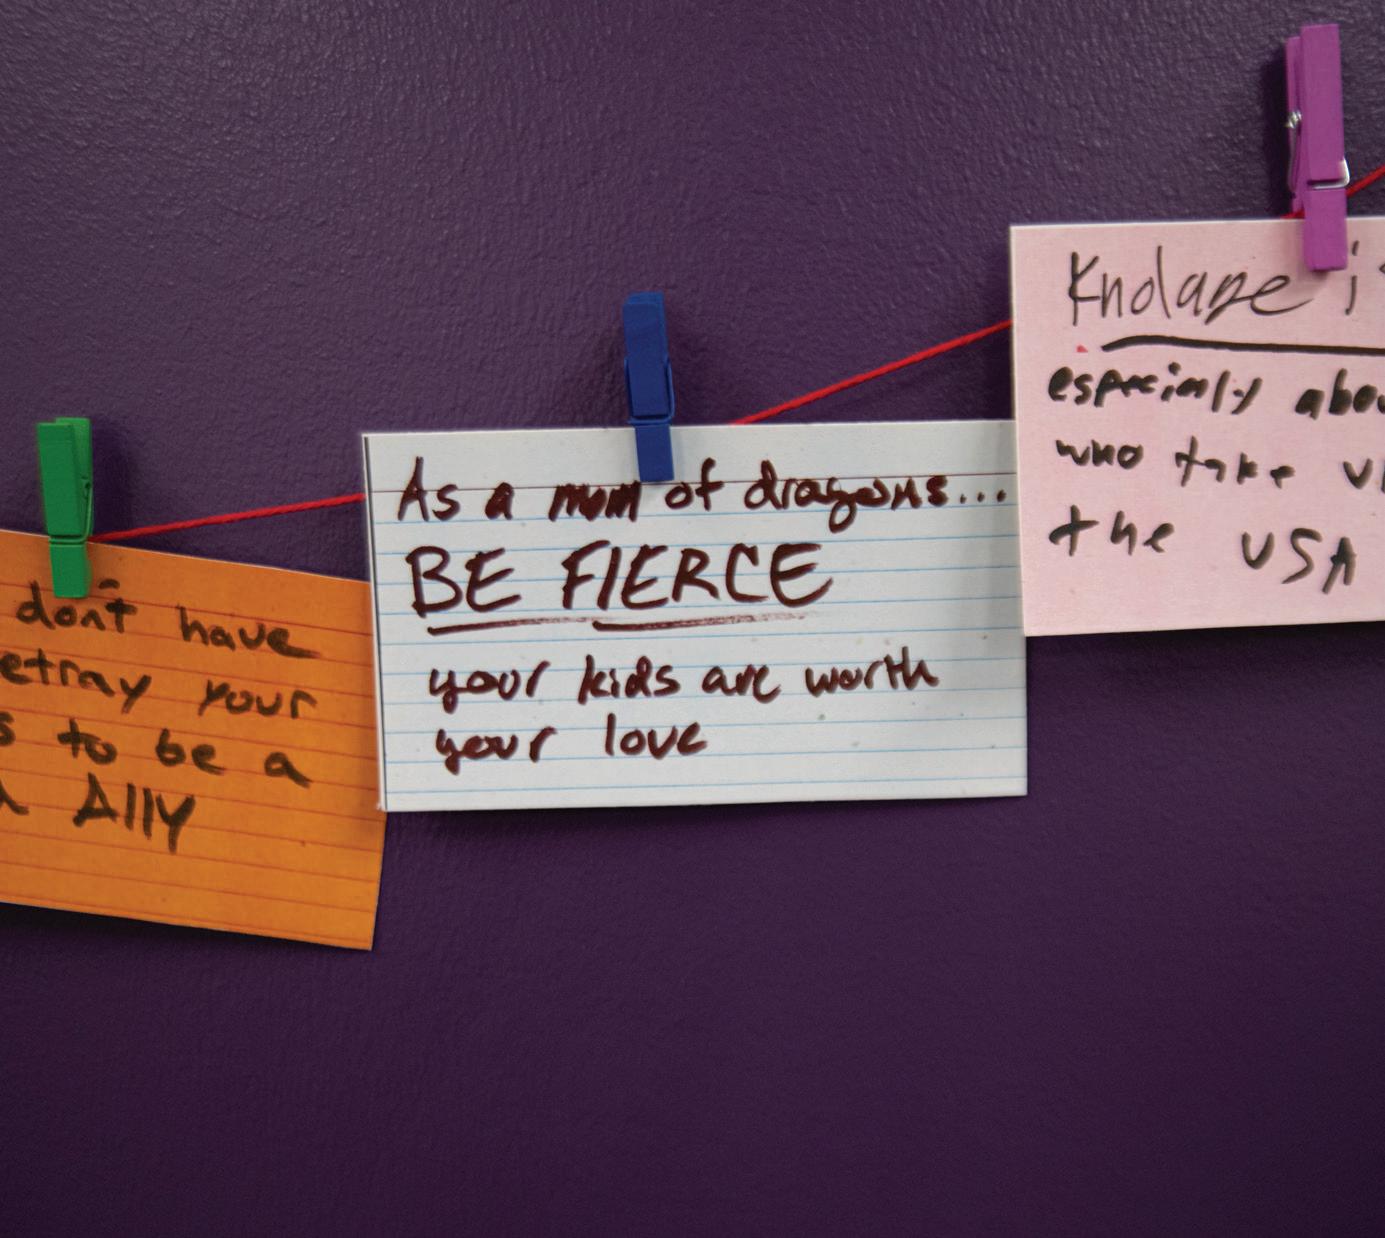 don't have
etray your
s to be a
Ally
As a mum of dragons...
BE FIERCE
your kids are worth
your love
Knolage i
especialy abou
who take
the USA